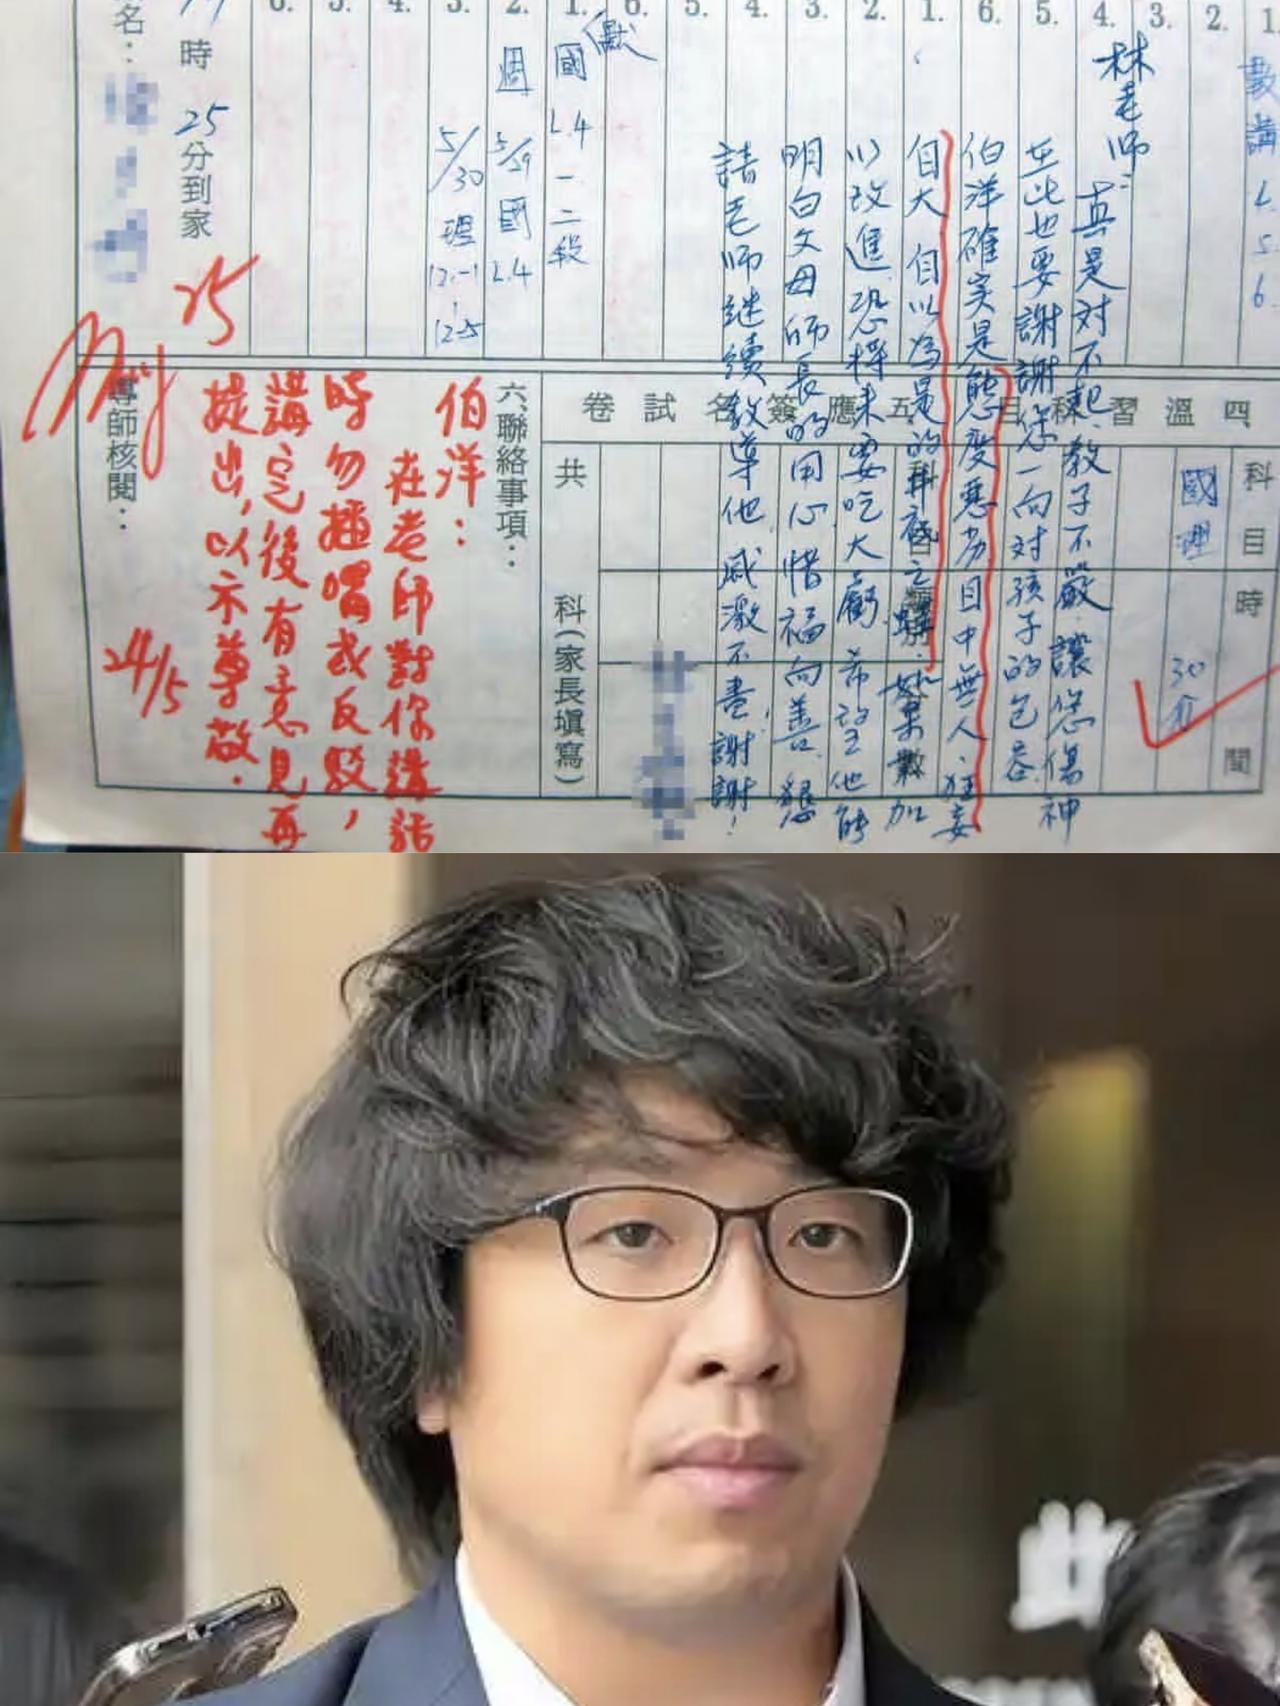 數講L.5.6
林老師：
真是對不起，教子不嚴，讓您傷神
至此也要謝謝您一向對孩子的包容，
伯洋確實是態度惡劣，目中無人、狂妄
自大、自以為是的
如果教加
以改進，恐將來要吃大虧，希望他能
明白父母師長的用心，惜福向善，懇
請老師繼續教導他，感激不盡，謝謝！
默
國L.4一、二段
週5/29國L.4
5/30理12-1、12-5
時25分到家
25
名：
1.
2.
3.
4.
5.
6.
1.
2.
3.
4.
5.
6.
1.
2.
3.
5.
6.
四溫習科目
科目
時間
國
理
30分
五應簽名試卷
共
科（家長填寫）
六、聯絡事項：
伯洋：
在老師對你講話
時勿插嘴或反駁，
講完後有意見再
提出，以示尊敬。
24/5
導師核閱：